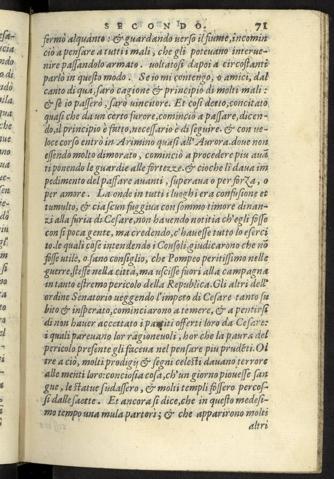 SECONDO. 71
fermò alquanto: & guardando verso il fiume, incomin
ciò a pensare a tutti i mali, che gli poteuano interue-
nire passandolo armato. voltatosi dapoi a circostanti
parlò in questo modo. Se io mi contengo, o amici, dal
canto di quà, sarò cagione & principio di molti mali:
& sè io passerò, sarò uincitore. Et cosi detto, concitato
quasi che da un certo furore, cominciò a passare, dicen-
do, il principio è fatto, necessario è di seguire. & con ue-
loce corso entrò in Arimino quasi all'Aurora. doue non
essendo molto dimorato, cominciò a procedere piu auā
ti ponendo le guardie alle fortezze. & cioche li daua im
pedimento del passare auanti, superaua o per forza, o
per amore. La onde in tutti i luoghi era confusione et
tumulto, & ciascun fuggiua con sommo timore dinan-
zi alla furia di Cesare, non hauendo notitia ch'egli fosse
con si poca gente, ma credendo, c'hauesse tutto lo eserci
to. le quali cose intendendo i Consoli, giudicarono che nō
fosse utile, o sano consiglio, che Pompeo peritissimo nelle
guerre, stesse nella città, ma uscisse fuori alla campagna
in tanto estremo pericolo della Republica. Gli altri dell'
ordine Senatorio ueggendo l'impeto di Cesare tanto su
bito & insperato, cominciarono a temere, & a pentirsi
di non hauer accettato i partiti offerti loro da Cesare:
i quali pareuano lor ragioneuoli, hor che la paura del
pericolo presente gli faceua nel pensare piu prudēti. Ol
tre a ciò, molti prodigij & segni celesti dauano terrore
alle menti loro: conciosia cosa, ch'un giorno piouesse san
gue, le statue sudassero, & molti templi fossero percos-
si dalle saette. Et ancora si dice, che in questo medesi-
mo tempo una mula partorì; & che apparirono molti
altri